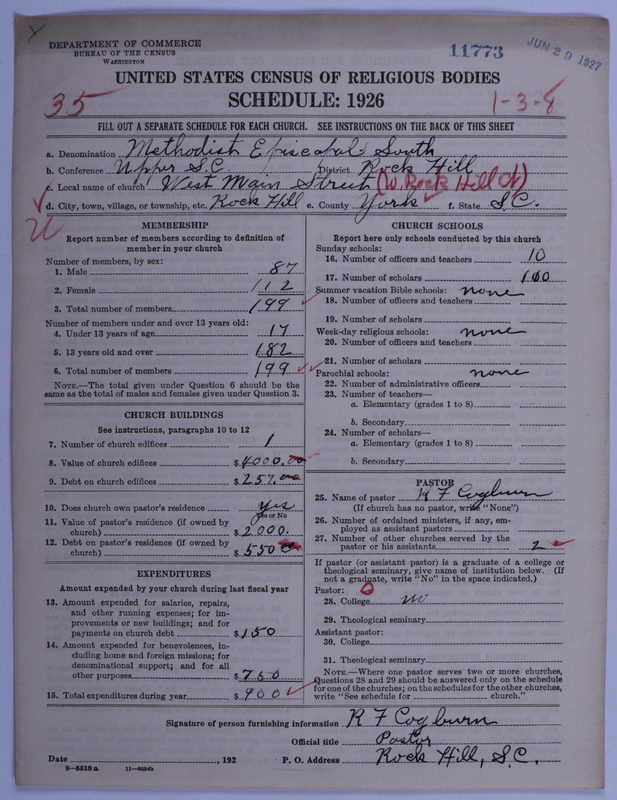 DEPARTMENT OF COMMERCE
BUREAU OF THE CENSUS
WASHINGTON
11773
JUN 29 1927
UNITED STATES CENSUS OF RELIGIOUS BODIES
SCHEDULE: 1926
35
1-3-8
FILL OUT A SEPARATE SCHEDULE FOR EACH CHURCH. SEE INSTRUCTIONS ON THE BACK OF THIS SHEET
a. Denomination Methodist Episcopal South
b. Conference Upper S.C. District Rock Hill
c. Local name of church West Main Street (W. Rock Hill Ct)
d. City, town, village, or township, etc. Rock Hill e. County York f. State S.C.
MEMBERSHIP
Report number of members according to definition of member in your church
Number of members, by sex:
1. Male 87
2. Female 112
3. Total number of members 199
Number of members under and over 13 years old:
4. Under 13 years of age 17
5. 13 years old and over 182
6. Total number of members 199
NOTE.—The total given under Question 6 should be the same as the total of males and females given under Question 3.
CHURCH BUILDINGS
See instructions, paragraphs 10 to 12
7. Number of church edifices 1
8. Value of church edifices $4000.00
9. Debt on church edifices $257.00
10. Does church own pastor's residence Yes
Yes or No
11. Value of pastor's residence (if owned by church) $2000.
12. Debt on pastor's residence (if owned by church) $550
EXPENDITURES
Amount expended by your church during last fiscal year
13. Amount expended for salaries, repairs, and other running expenses; for improvements or new buildings; and for payments on church debt $150
14. Amount expended for benevolences, including home and foreign missions; for denominational support; and for all other purposes $750
15. Total expenditures during year $900
CHURCH SCHOOLS
Report here only schools conducted by this church
Sunday schools:
16. Number of officers and teachers 10
17. Number of scholars 100
Summer vacation Bible schools: none
18. Number of officers and teachers
19. Number of scholars
Week-day religious schools: none
20. Number of officers and teachers
21. Number of scholars
Parochial schools: none
22. Number of administrative officers
23. Number of teachers—
a. Elementary (grades 1 to 8)
b. Secondary
24. Number of scholars—
a. Elementary (grades 1 to 8)
b. Secondary
PASTOR
25. Name of pastor R F Cogburn
(If church has no pastor, write "None")
26. Number of ordained ministers, if any, employed as assistant pastors
27. Number of other churches served by the pastor or his assistants 2
If pastor (or assistant pastor) is a graduate of a college or theological seminary, give name of institution below. (If not a graduate, write "No" in the space indicated.)
Pastor: 0
28. College no
29. Theological seminary
Assistant pastor:
30. College
31. Theological seminary
NOTE.—Where one pastor serves two or more churches, Questions 28 and 29 should be answered only on the schedule for one of the churches; on the schedules for the other churches, write "See schedule for church."
Signature of person furnishing information R F Cogburn
Official title Pastor
Date , 192 P. O. Address Rock Hill, S.C.
8—5518a 11—9054b